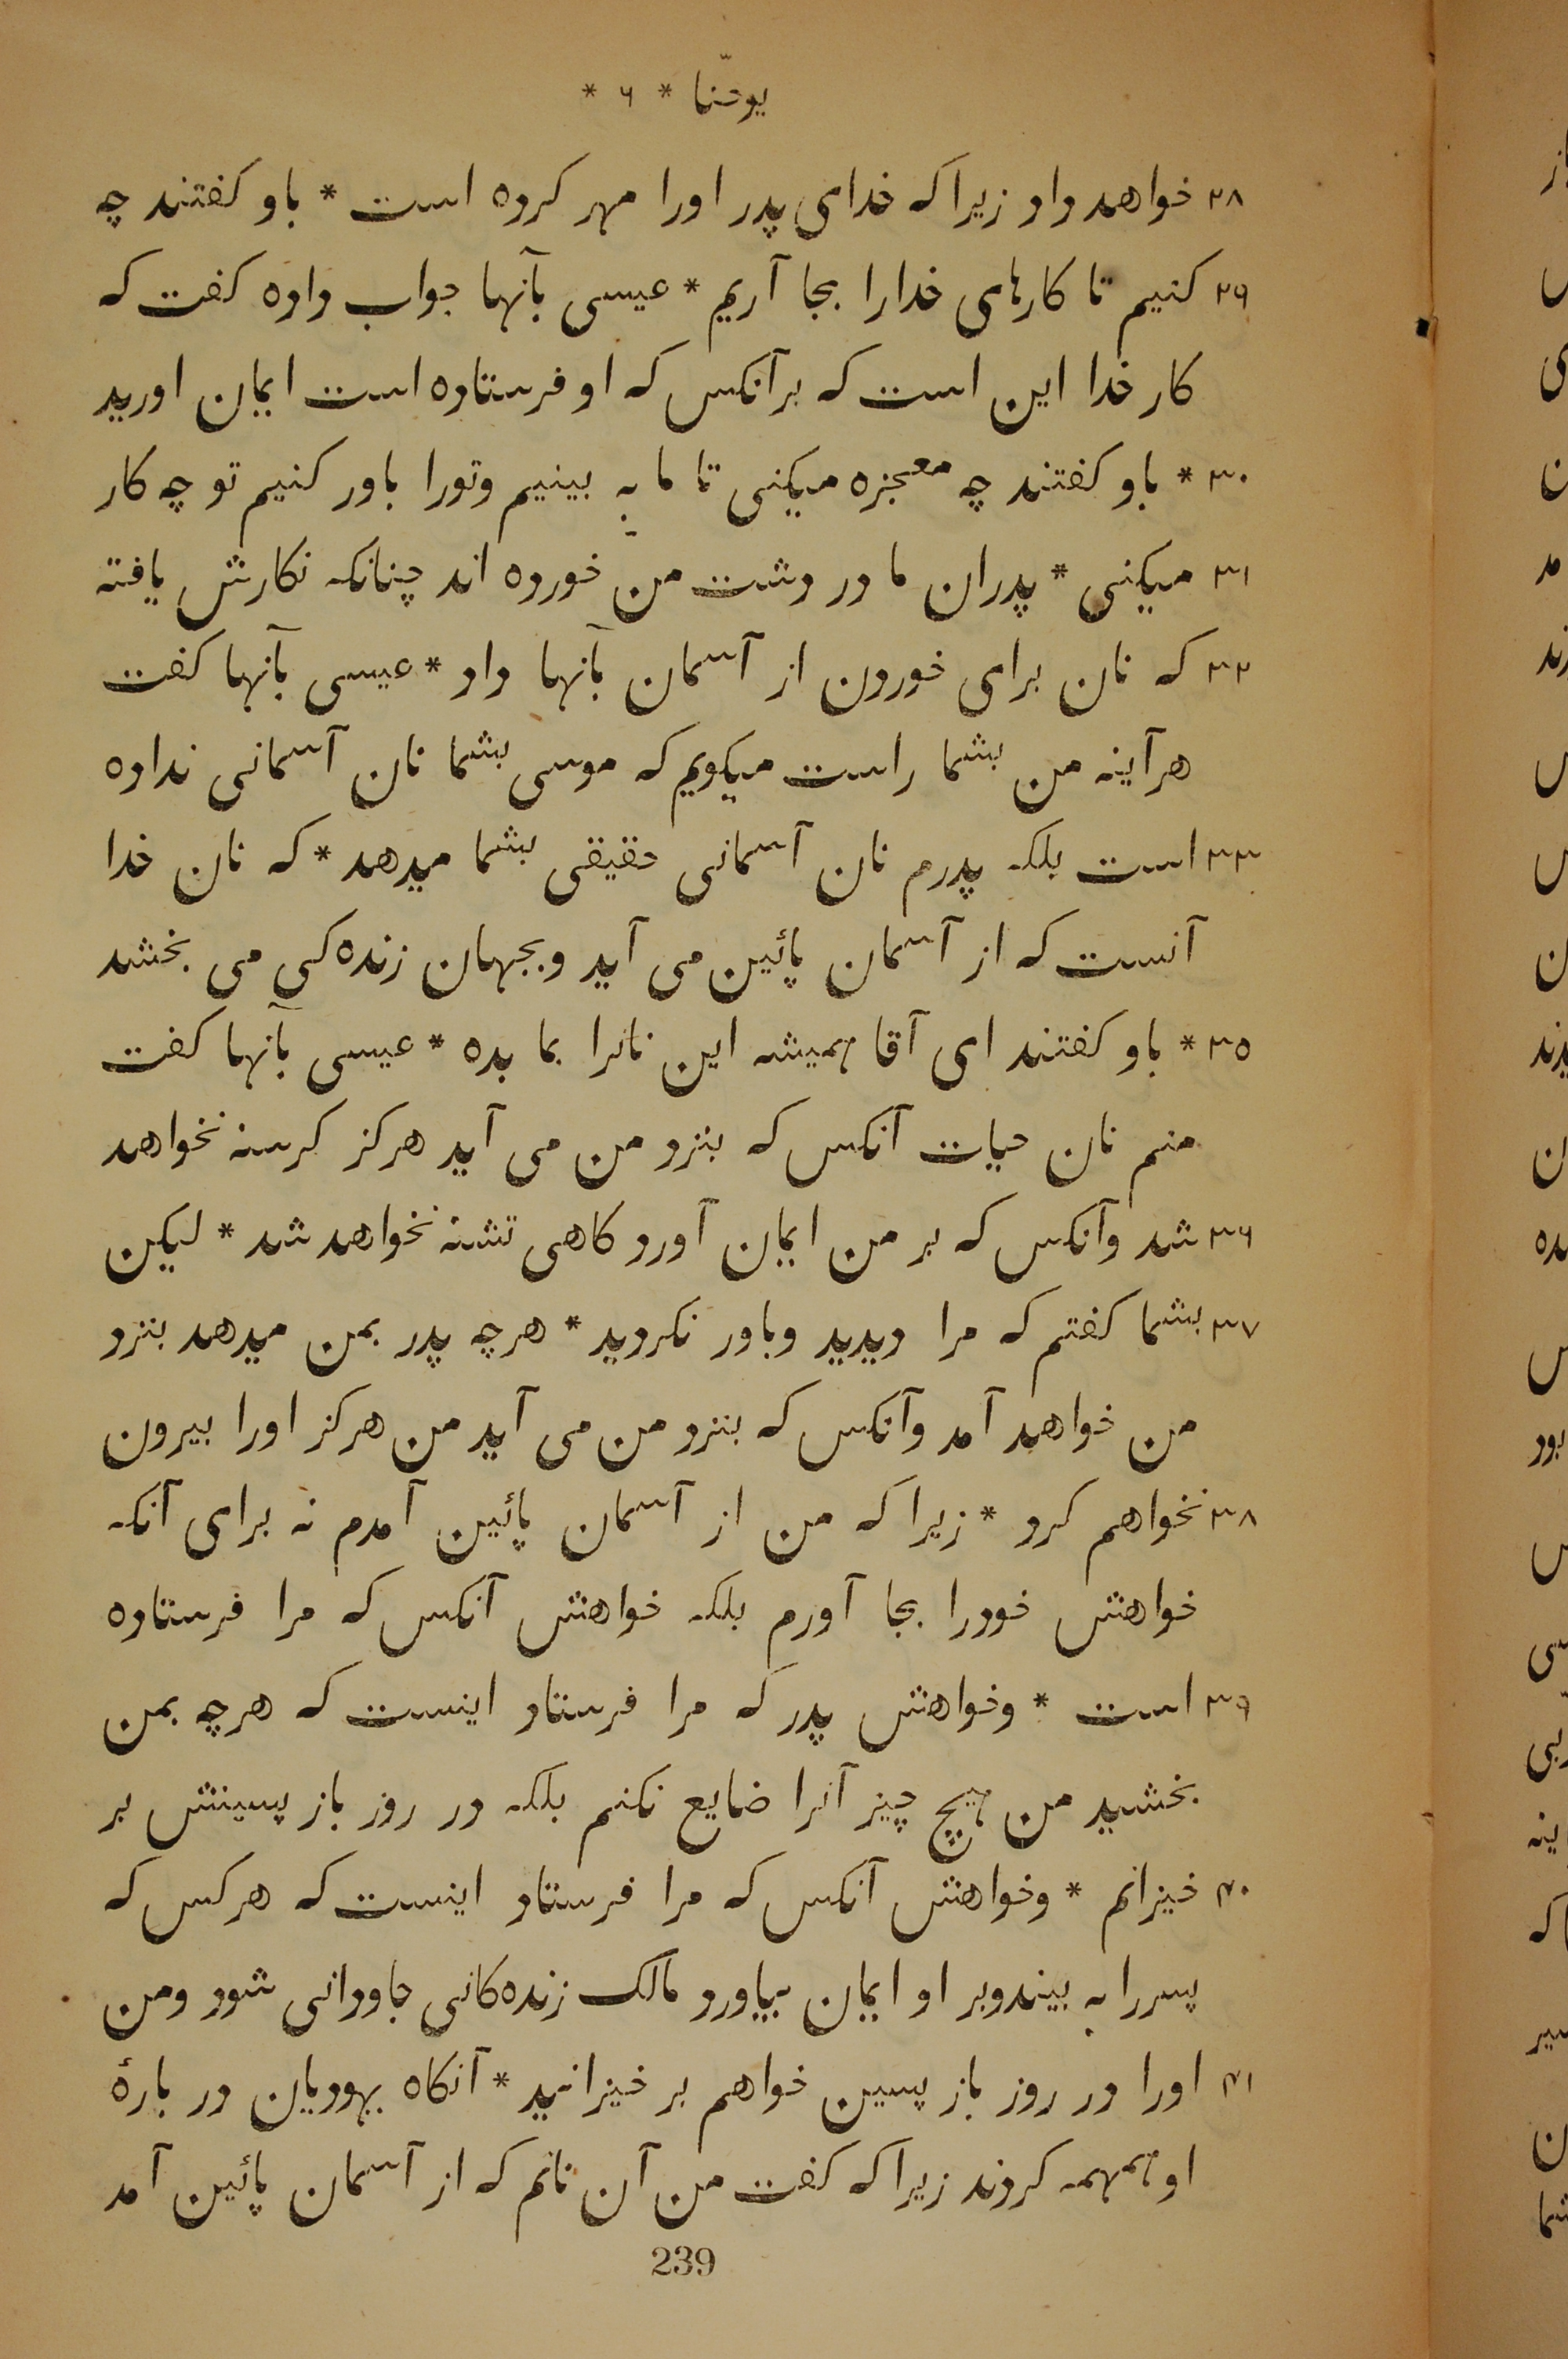 یوحنّا * ۶ *
۲۸ خواهد داد زیرا که خدای پدر اورا مهر کرده است * باو کفتند چه
۲۹ کنیم تا کارهای خدارا بجا آریم * عیسی بآنها جواب داده کفت که
کار خدا این است که برآنکس که او فرستاده است ایمان اورید
۳۰ * باو کفتند چه معجزه میکنی تا ما به بینیم وتورا باور کنیم تو چه کار
۳۱ میکنی * پدران ما در دشت من خورده اند چنانکه نکارش یافته
۳۲ که نان برای خوردن از آسمان بآنها داد * عیسی بآنها کفت
هرآینه من بشما راست میکویم که موسی بشما نان آسمانی نداده
۳۳ است بلکه پدرم نان آسمانی حقیقی بشما میدهد * که نان خدا
آنست که از آسمان پائین می آید وبجهان زنده کی می بخشد
۳۵ * باو کفتند ای آقا همیشه این نانرا بما بده * عیسی بآنها کفت
منم نان حیات آنکس که بنزد من می آید هرکز کرسنه نخواهد
۳۶ شد وآنکس که بر من ایمان آورد کاهی تشنه نخواهد شد * لیکن
۳۷ بشما کفتم که مرا دیدید وباور نکردید * هرچه پدر بمن میدهد بنزد
من خواهد آمد وآنکس که بنزد من می آید من هرکز اورا بیرون
۳۸ نخواهم کرد * زیرا که من از آسمان پائین آمدم نه برای آنکه
خواهش خودرا بجا آورم بلکه خواهش آنکس که مرا فرستاده
۳۹ است * وخواهش پدر که مرا فرستاد اینست که هرچه بمن
بخشید من هیچ چیز آنرا ضایع نکنم بلکه در روز باز پسینش بر
۴۰ خیزانم * وخواهش آنکس که مرا فرستاد اینست که هرکس که
پسررا به بیندوبر او ایمان بیاورد مالک زنده کانی جاودانی شود ومن
۴۱ اورا در روز باز پسین خواهم بر خیزانید * آنکاه یهودیان در بارهٔ
او همهمه کردند زیرا که کفت من آن نانم که از آسمان پائین آمد
239